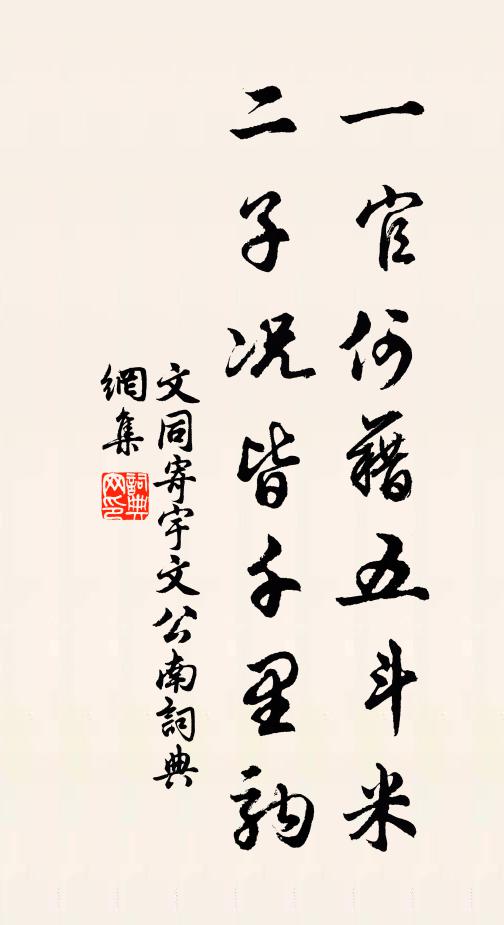 一官何藉五斗米
二子况皆千里駒
文同寄宇文公南詞典
網集
詞典
网印